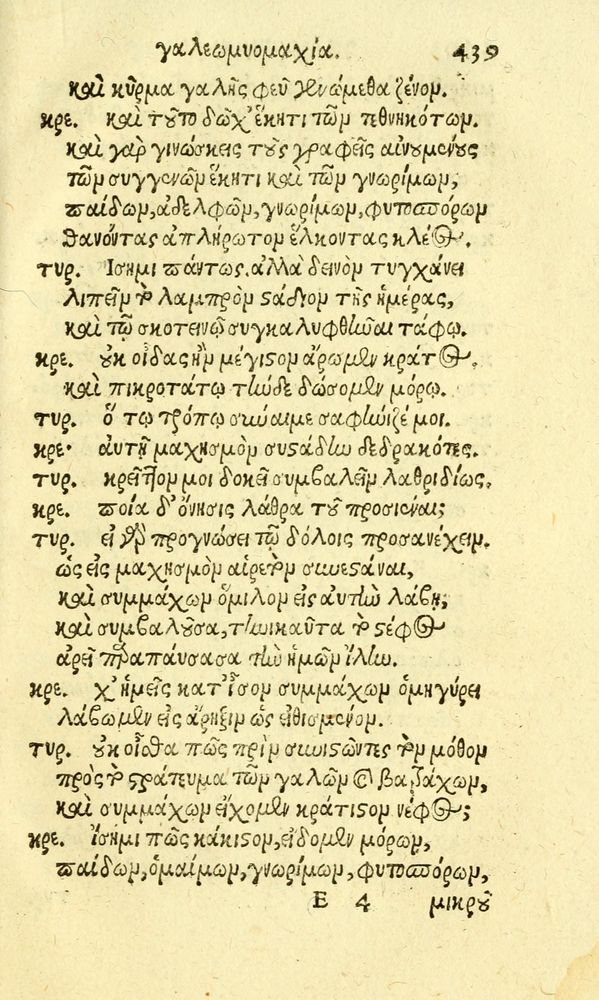 γαλεωμυομαχία. 439
καὶ κῦρμα γαλῆς φεῦ γενώμεθα ξένον.
κρε. καὶ τοῦτο δῶχ' ἕκητι τῶν τεθνηκότων.
καὶ γὰρ γινώσκεις τοὺς γραφεῖς αἰνουμένους
τῶν συγγενῶν ἕκητι καὶ τῶν γνωρίμων,
παίδων, ἀδελφῶν, γνωρίμων, φυτοσπόρων
θανόντας ἀπλήρωτον ἕλκοντας κλέος.
τυρ. Ισημι πάντως. ἀλλὰ δεινὸν τυγχάνει
λιπεῖν τὸ λαμπρὸν στάδιον τῆς ἡμέρας,
καὶ τῷ σκοτεινῷ συγκαλυφθῆναι τάφῳ.
κρε. οὐκ οἶδας ἢν μέγιστον ἄρωμεν κράτος,
καὶ πικροτάτῳ τήνδε δώσομεν μόρῳ.
τυρ. ὅ τῳ τρόπῳ σύναιμε σαφήνιζέ μοι.
κρε. αὐτῇ μαχησμὸν συστάδην δεδρακότες.
τυρ. κρεῖττον μοι δοκεῖ συμβαλεῖν λαθριδίως,
κρε. ποία δ' ὄνησις λάθρα τοῦ προσιέναι;
τυρ. εἰ γὰρ προγνώσει τῷ δόλοις προσανέχειν.
ὡς εἰς μαχησμὸν αἱρετὸν συνεστάναι,
καὶ συμμάχων ὅμιλον εἰς αὐτὴν λάβῃ;
καὶ συμβαλοῦσα, τηνικαῦτα τὸ στέφος
ἀρεῖ παραπαύσασα τὴν ἡμῶν ἴλην.
κρε. χ' ἡμεῖς κατ' ἶσον συμμάχων ὁμηγύρει
λάβωμεν εἰς ἄρηξιν ὡς εἰθισμένον.
τυρ. οὐκ οἶσθα πῶς πρὶν συνιστῶντες τὸν μόθον
πρὸς τὸ στράτευμα τῶν γαλῶν καὶ βατράχων,
καὶ συμμάχων εἴχομεν κράτιστον νέφος;
κρε. ἴσημι πῶς κάκιστον, εἴδομεν μόρον,
παίδων, ὁμαίμων, γνωρίμων, φυτοσπόρων,
E 4 μικροῦ